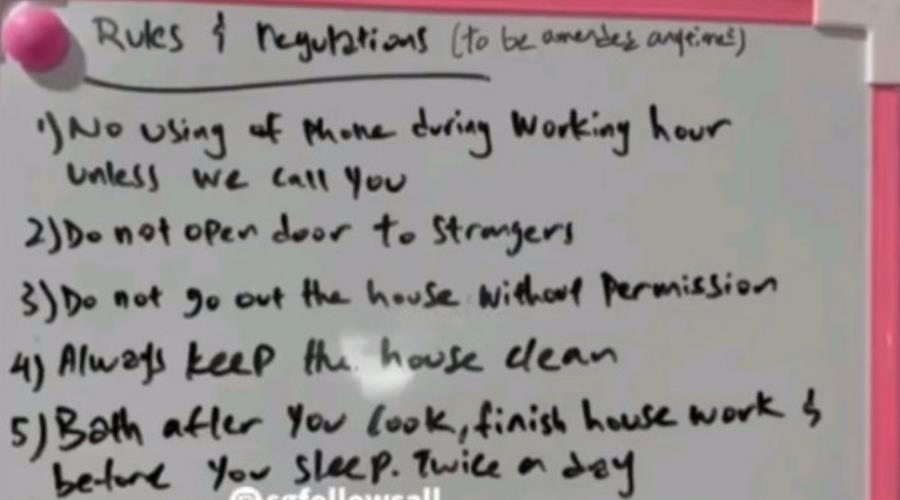 Rules & Regulations (to be amended anytime)
1) No using of phone during working hour
unless we call you
2) Do not open door to strangers
3) Do not go out the house without permission
4) Always keep the house clean
5) Bath after you cook, finish house work &
before you sleep. Twice a day
@sgfollowsall